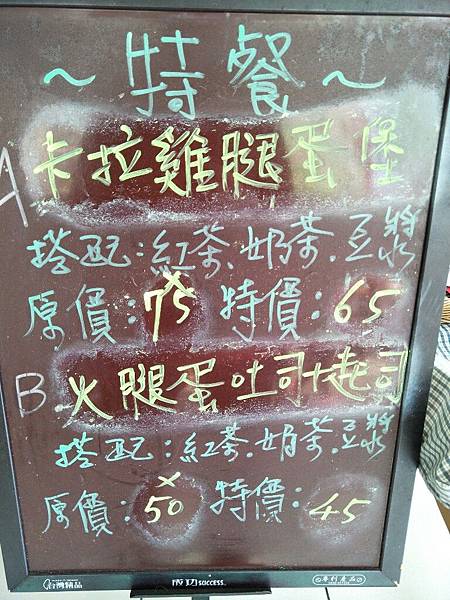 ~特餐~
A 卡拉雞腿蛋堡
搭配:紅茶.奶茶.豆漿
原價:75 特價:65
B 火腿蛋吐司+起司
搭配:紅茶.奶茶.豆漿
原價:50 特價:45
台灣精品 成功 SUCCESS 專利產品